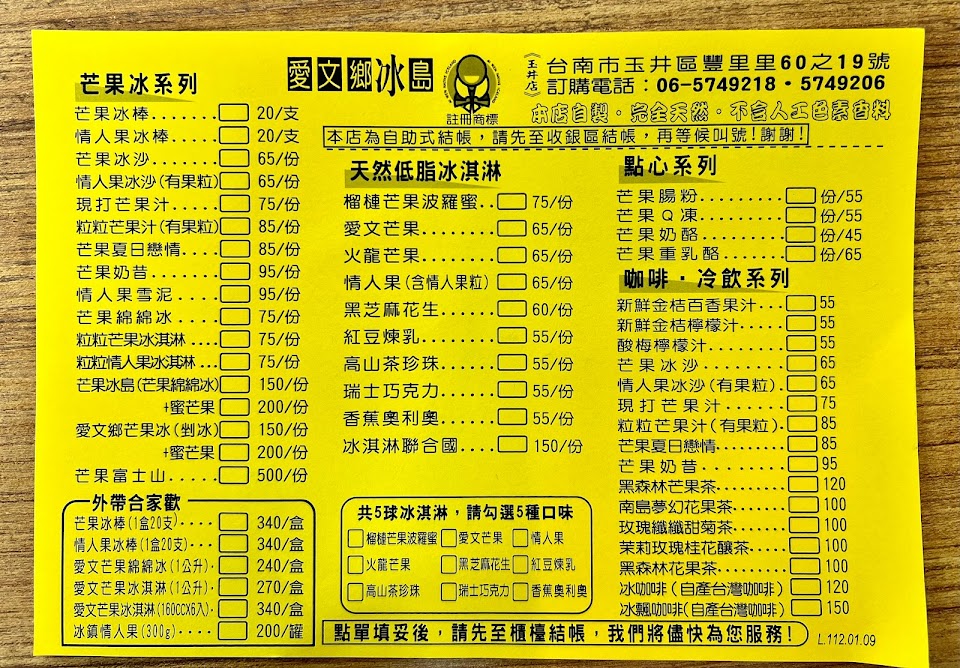 愛文鄉冰島
註冊商標
《玉井店》
台南市玉井區豐里里60之19號
訂購電話：06-5749218·5749206
本店自製·完全天然·不含人工色素香料
本店為自助式結帳，請先至收銀區結帳，再等候叫號！謝謝！
芒果冰系列
芒果冰棒.......20/支
情人果冰棒.....20/支
芒果冰沙.......65/份
情人果冰沙(有果粒) 65/份
現打芒果汁.....75/份
粒粒芒果汁(有果粒) 85/份
芒果夏日戀情....85/份
芒果奶昔.......95/份
情人果雪泥.....95/份
芒果綿綿冰.....75/份
粒粒芒果冰淇淋....75/份
粒粒情人果冰淇淋...75/份
芒果冰島(芒果綿綿冰) 150/份
+蜜芒果 200/份
愛文鄉芒果冰(剉冰) 150/份
+蜜芒果 200/份
芒果富士山.....500/份
外帶合家歡
芒果冰棒(1盒20支)....340/盒
情人果冰棒(1盒20支)...340/盒
愛文芒果綿綿冰(1公升)·240/盒
愛文芒果冰淇淋(1公升)·270/盒
愛文芒果冰淇淋(160CCX6入)·340/盒
冰鎮情人果(300g)....200/罐
天然低脂冰淇淋
榴槤芒果波羅蜜..75/份
愛文芒果.......65/份
火龍芒果.......65/份
情人果(含情人果粒) 65/份
黑芝麻花生.....60/份
紅豆煉乳.......55/份
高山茶珍珠.....55/份
瑞士巧克力.....55/份
香蕉奧利奧.....55/份
冰淇淋聯合國....150/份
共5球冰淇淋，請勾選5種口味
榴槤芒果波羅蜜 愛文芒果 情人果
火龍芒果 黑芝麻花生 紅豆煉乳
高山茶珍珠 瑞士巧克力 香蕉奧利奧
點心系列
芒果腸粉.........份/55
芒果Q凍.........份/55
芒果奶酪.........份/45
芒果重乳酪.......份/65
咖啡·冷飲系列
新鮮金桔百香果汁...55
新鮮金桔檸檬汁....55
酸梅檸檬汁.......55
芒果冰沙........65
情人果冰沙(有果粒).65
現打芒果汁......75
粒粒芒果汁(有果粒).85
芒果夏日戀情......85
芒果奶昔........95
黑森林芒果茶......120
南島夢幻花果茶....100
玫瑰纖纖甜菊茶....100
茉莉玫瑰桂花釀茶...100
黑森林花果茶......100
冰咖啡(自產台灣咖啡) 120
冰飄咖啡(自產台灣咖啡) 150
點單填妥後，請先至櫃檯結帳，我們將儘快為您服務！
L.112.01.09